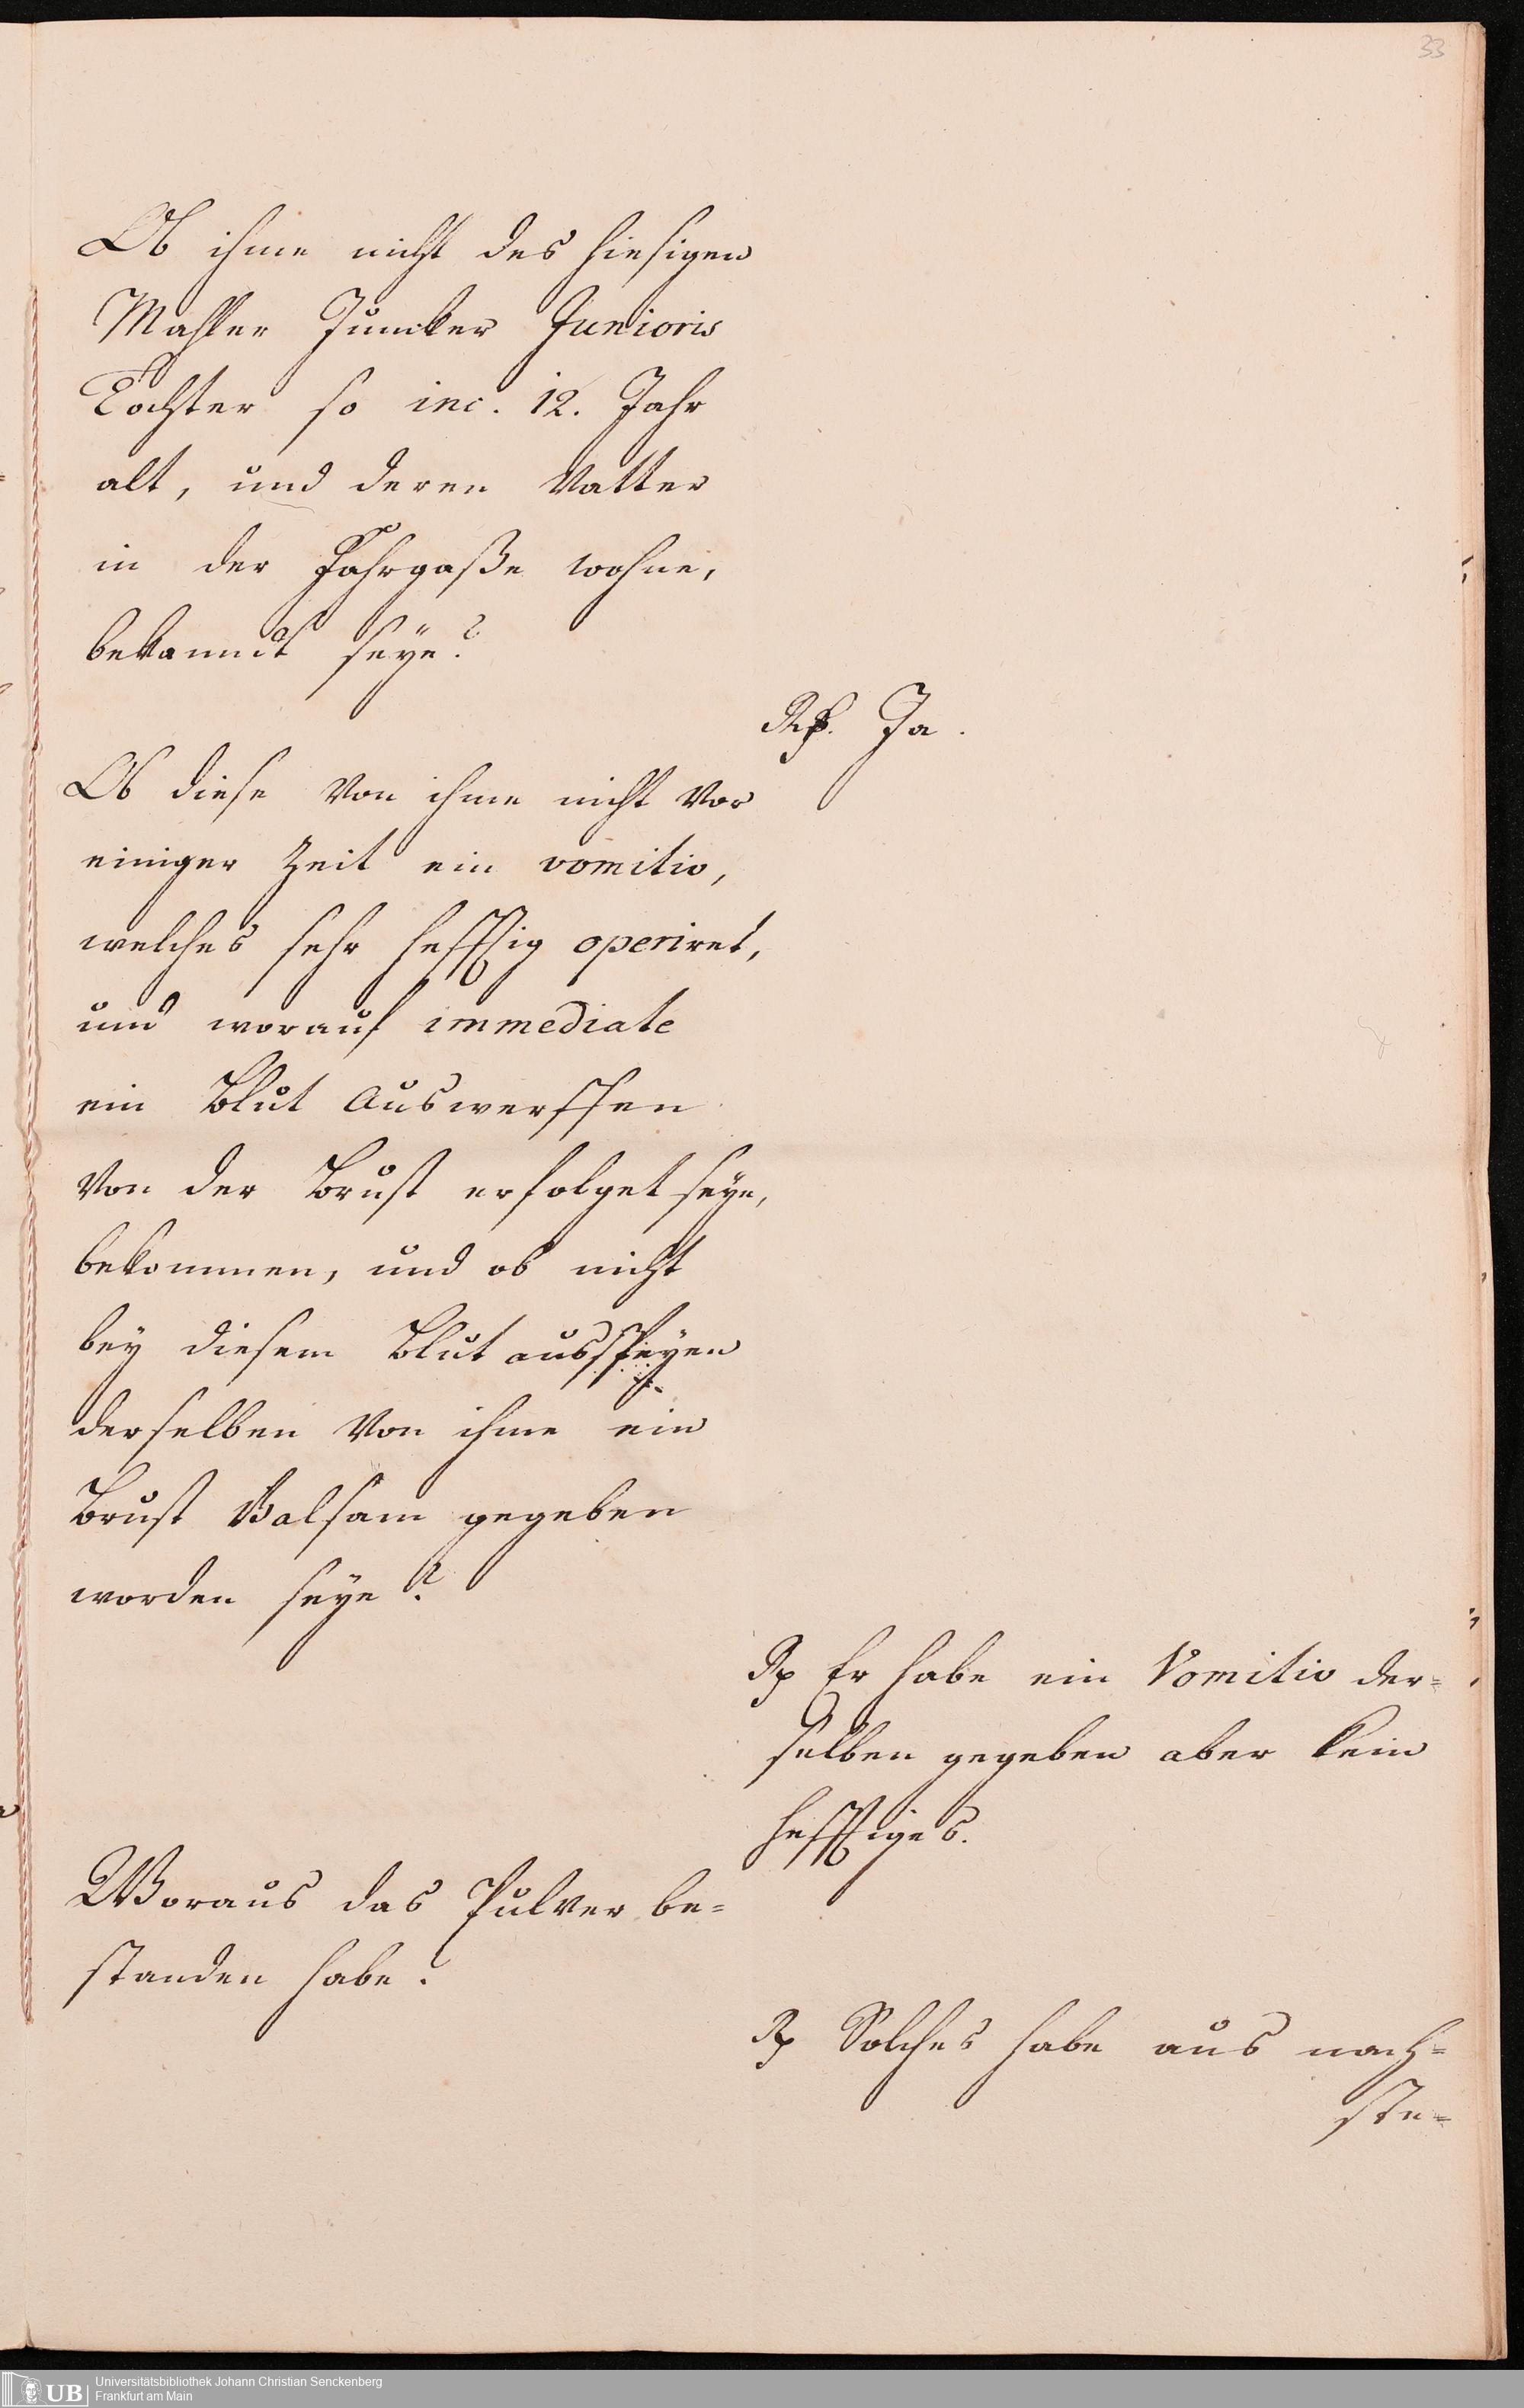 33
Ob ihme nicht des hiesigen
Mahler Juncker Junioris
Tochter so inc. 12. Jahr
alt, und deren Vatter
in der Fahrgaße wohne,
bekanndt seye?
Rp. Ja.
Ob diese von ihme nicht vor
einiger Zeit ein vomitiv,
welches sehr hefftig operiret,
und worauf immediate
ein Blut Auswerffen
von der Brust erfolget seye,
bekommen, und ob nicht
bey diesem Blut ausspeyen
derselben von ihme ein
Brust Balsam gegeben
worden seye?
Rp Er habe ein Vomitiv der=
selben gegeben aber kein
hefftiges.
Woraus das Pulver be=
standen habe?
Rp Solches habe aus nach=
ste=
UB
Universitätsbibliothek Johann Christian Senckenberg
Frankfurt am Main